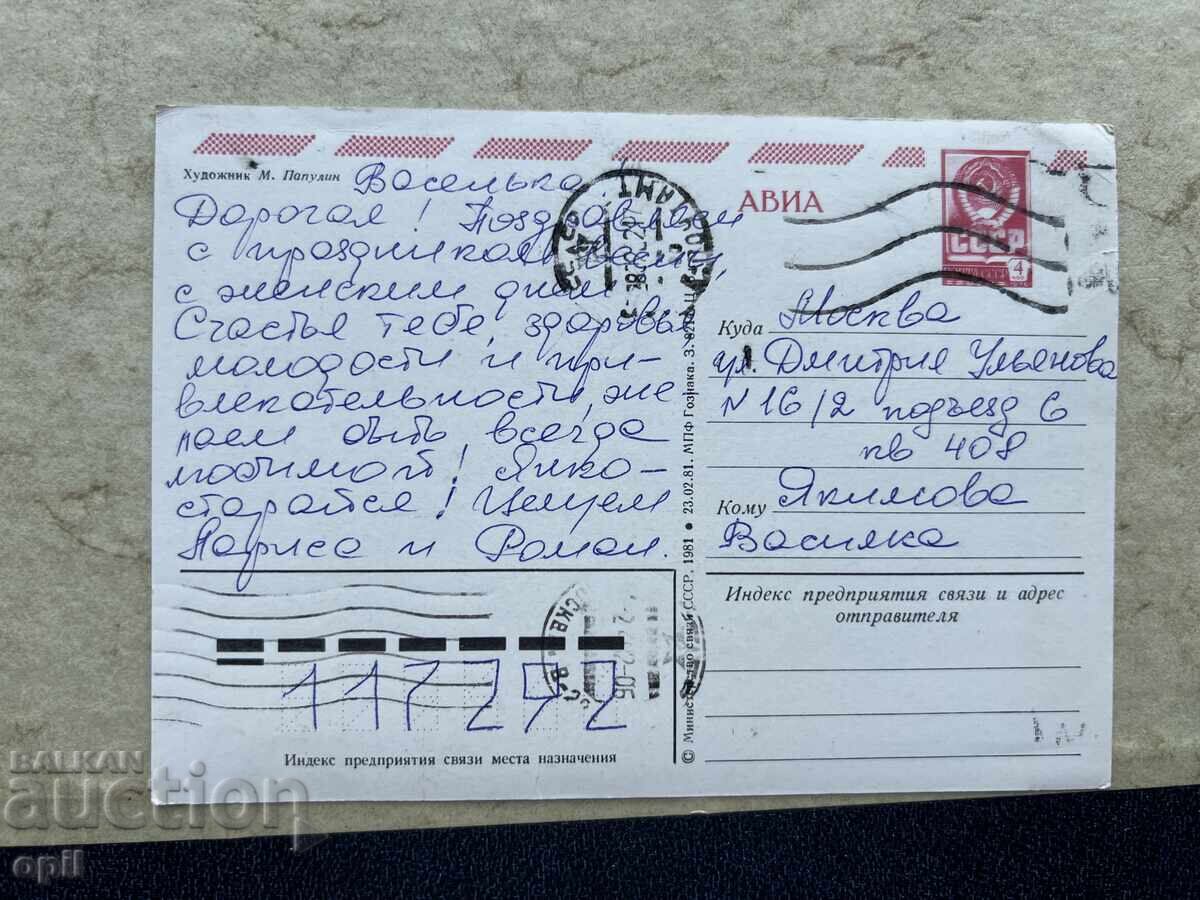 Художник М. Папулин
Васелька!
Дорогая! Поздравляем
с праздником весны,
с женским днем
Счастье тебе, здоровье
молодости и при-
влекательности, же
лаем быть всегда
любимой!
старайся! Целуем
Лариса и Роман.
АВИА
СССР
ПОЧТА СССР
4
Куда Москва
ул. Дмитрия Ульянова
N 16/2 подъезд 6
кв 408
Кому Якимова
Василка
Индекс предприятия связи и адрес
отправителя
© Министерство связи СССР, 1981 • 23.02.81. МПФ Гознака. З.
117292
Индекс предприятия связи места назначения
BALKAN
auction
opil